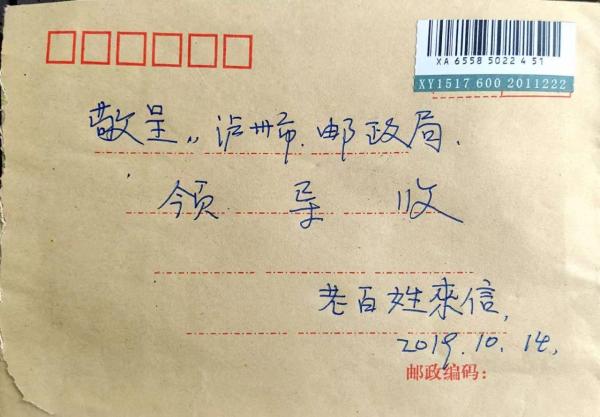 XA 6558 5022 4 51
XY1517 600 2011222
敬呈,,泸州市.邮政局.
领导收
老百姓來信,
2019.10.14,
邮政编码: